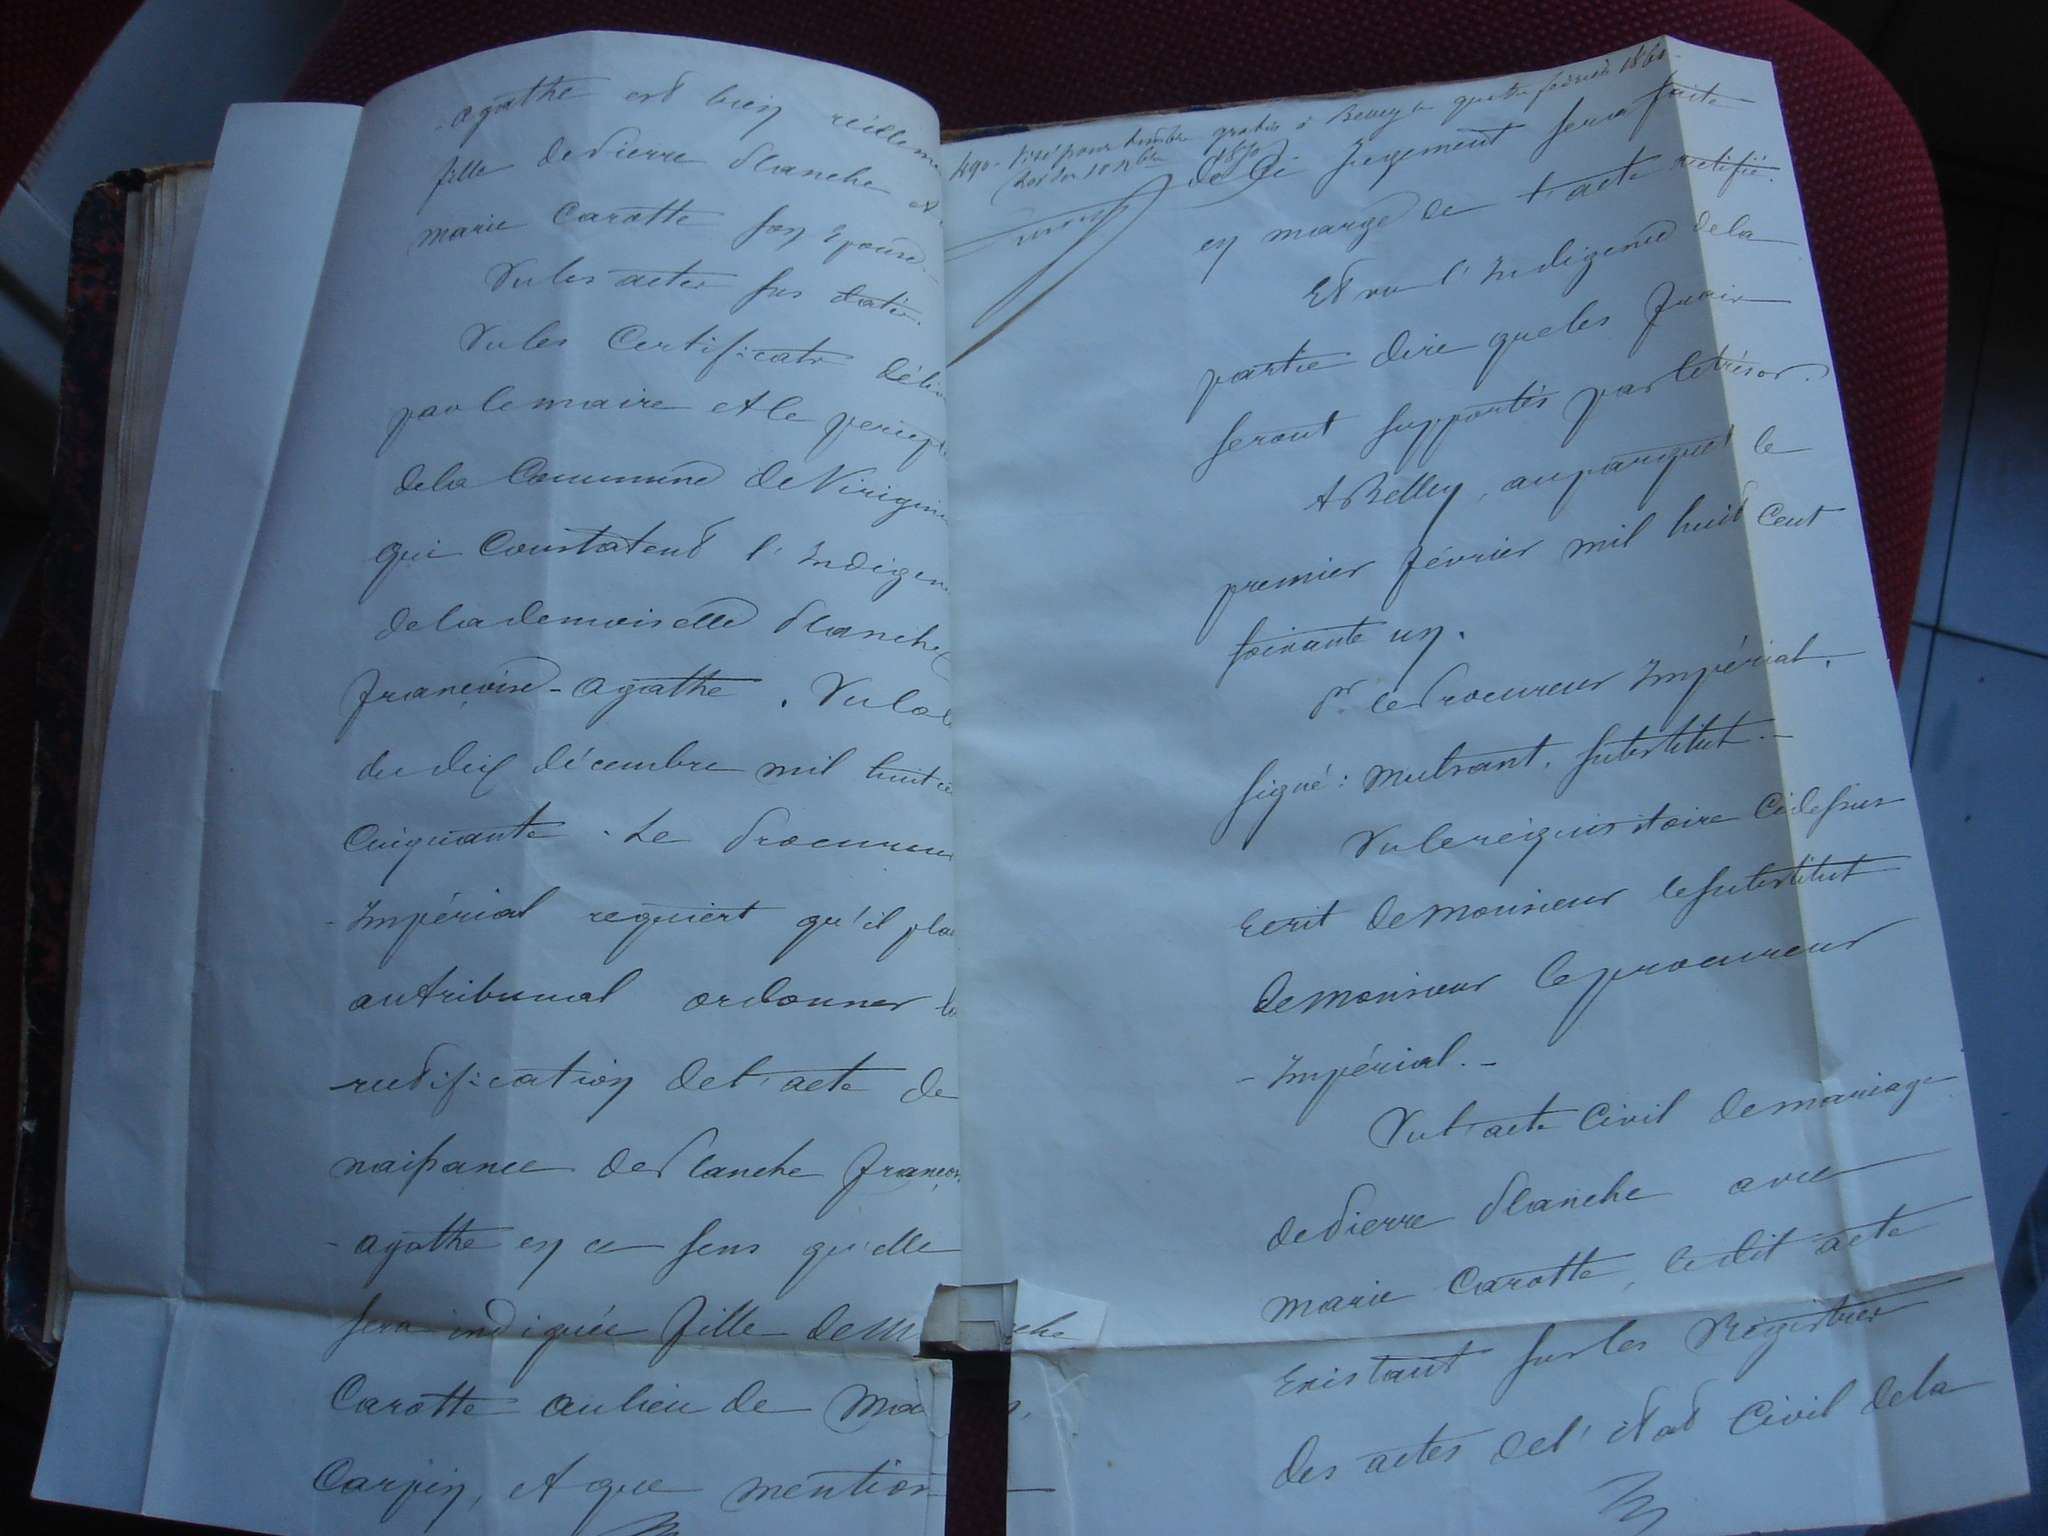 agathe est bien réelleme
fille de Pierre Planche et
marie Carotte son épouse.
Vu les actes sus datés.
Vu les Certificats déli
par le maire et le percep
de la Commune de Virignin
qui Constatent l'Indigen
de la demoiselle Planche
françoise-agathe. Vu la
du dix décembre mil huit ce
Cinquante. Le Procureur
Impérial requiert qu'il pla
au tribunal ordonner la
rectification de l'acte de
naissance de Planche françois
agathe en ce sens qu'elle
sera indiquée fille de M che
Carotte au lieu de Ma
Carpin, et que mention
490. Visé pour timbre gratis à Belley le quatre février 1861.
1850
de ce Jugement sera faite
en marge de l'acte rectifié.
Et vu l'Indigence de la
partie dire que les frais
seront supportés par le trésor.
A Belley, au parquet le
premier février mil huit Cent
soixante un.
Pr le Procureur Impérial,
signé: Mutrant, Substitut.
Vu le réquisitoire Ci dessus
Ecrit de Monsieur le substitut
de Monsieur le procureur
Impérial.
Vu l'acte Civil de mariage
de Pierre Planche avec
marie Carotte, le dit acte
Existant sur les Registres
des actes de l'état Civil de la